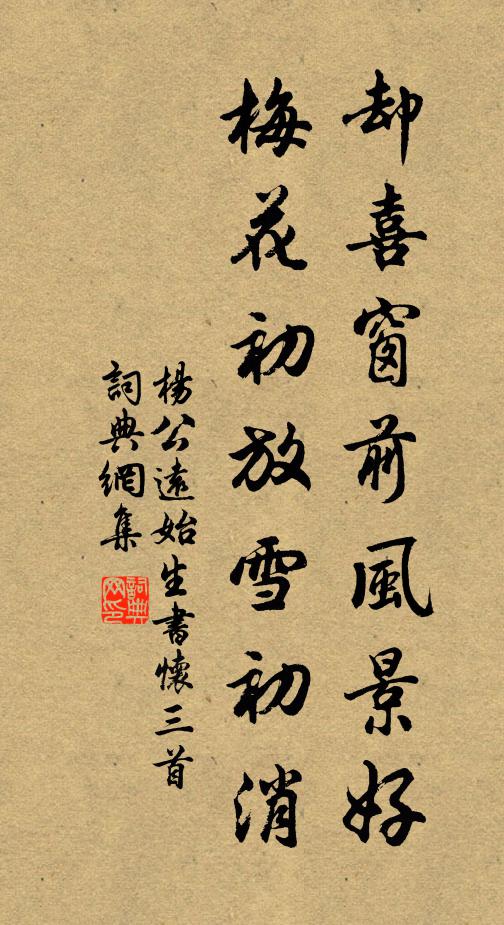 却喜窗前風景好
梅花初放雪初消
楊公遠始生書懷三首
詞典網集
詞典
网印